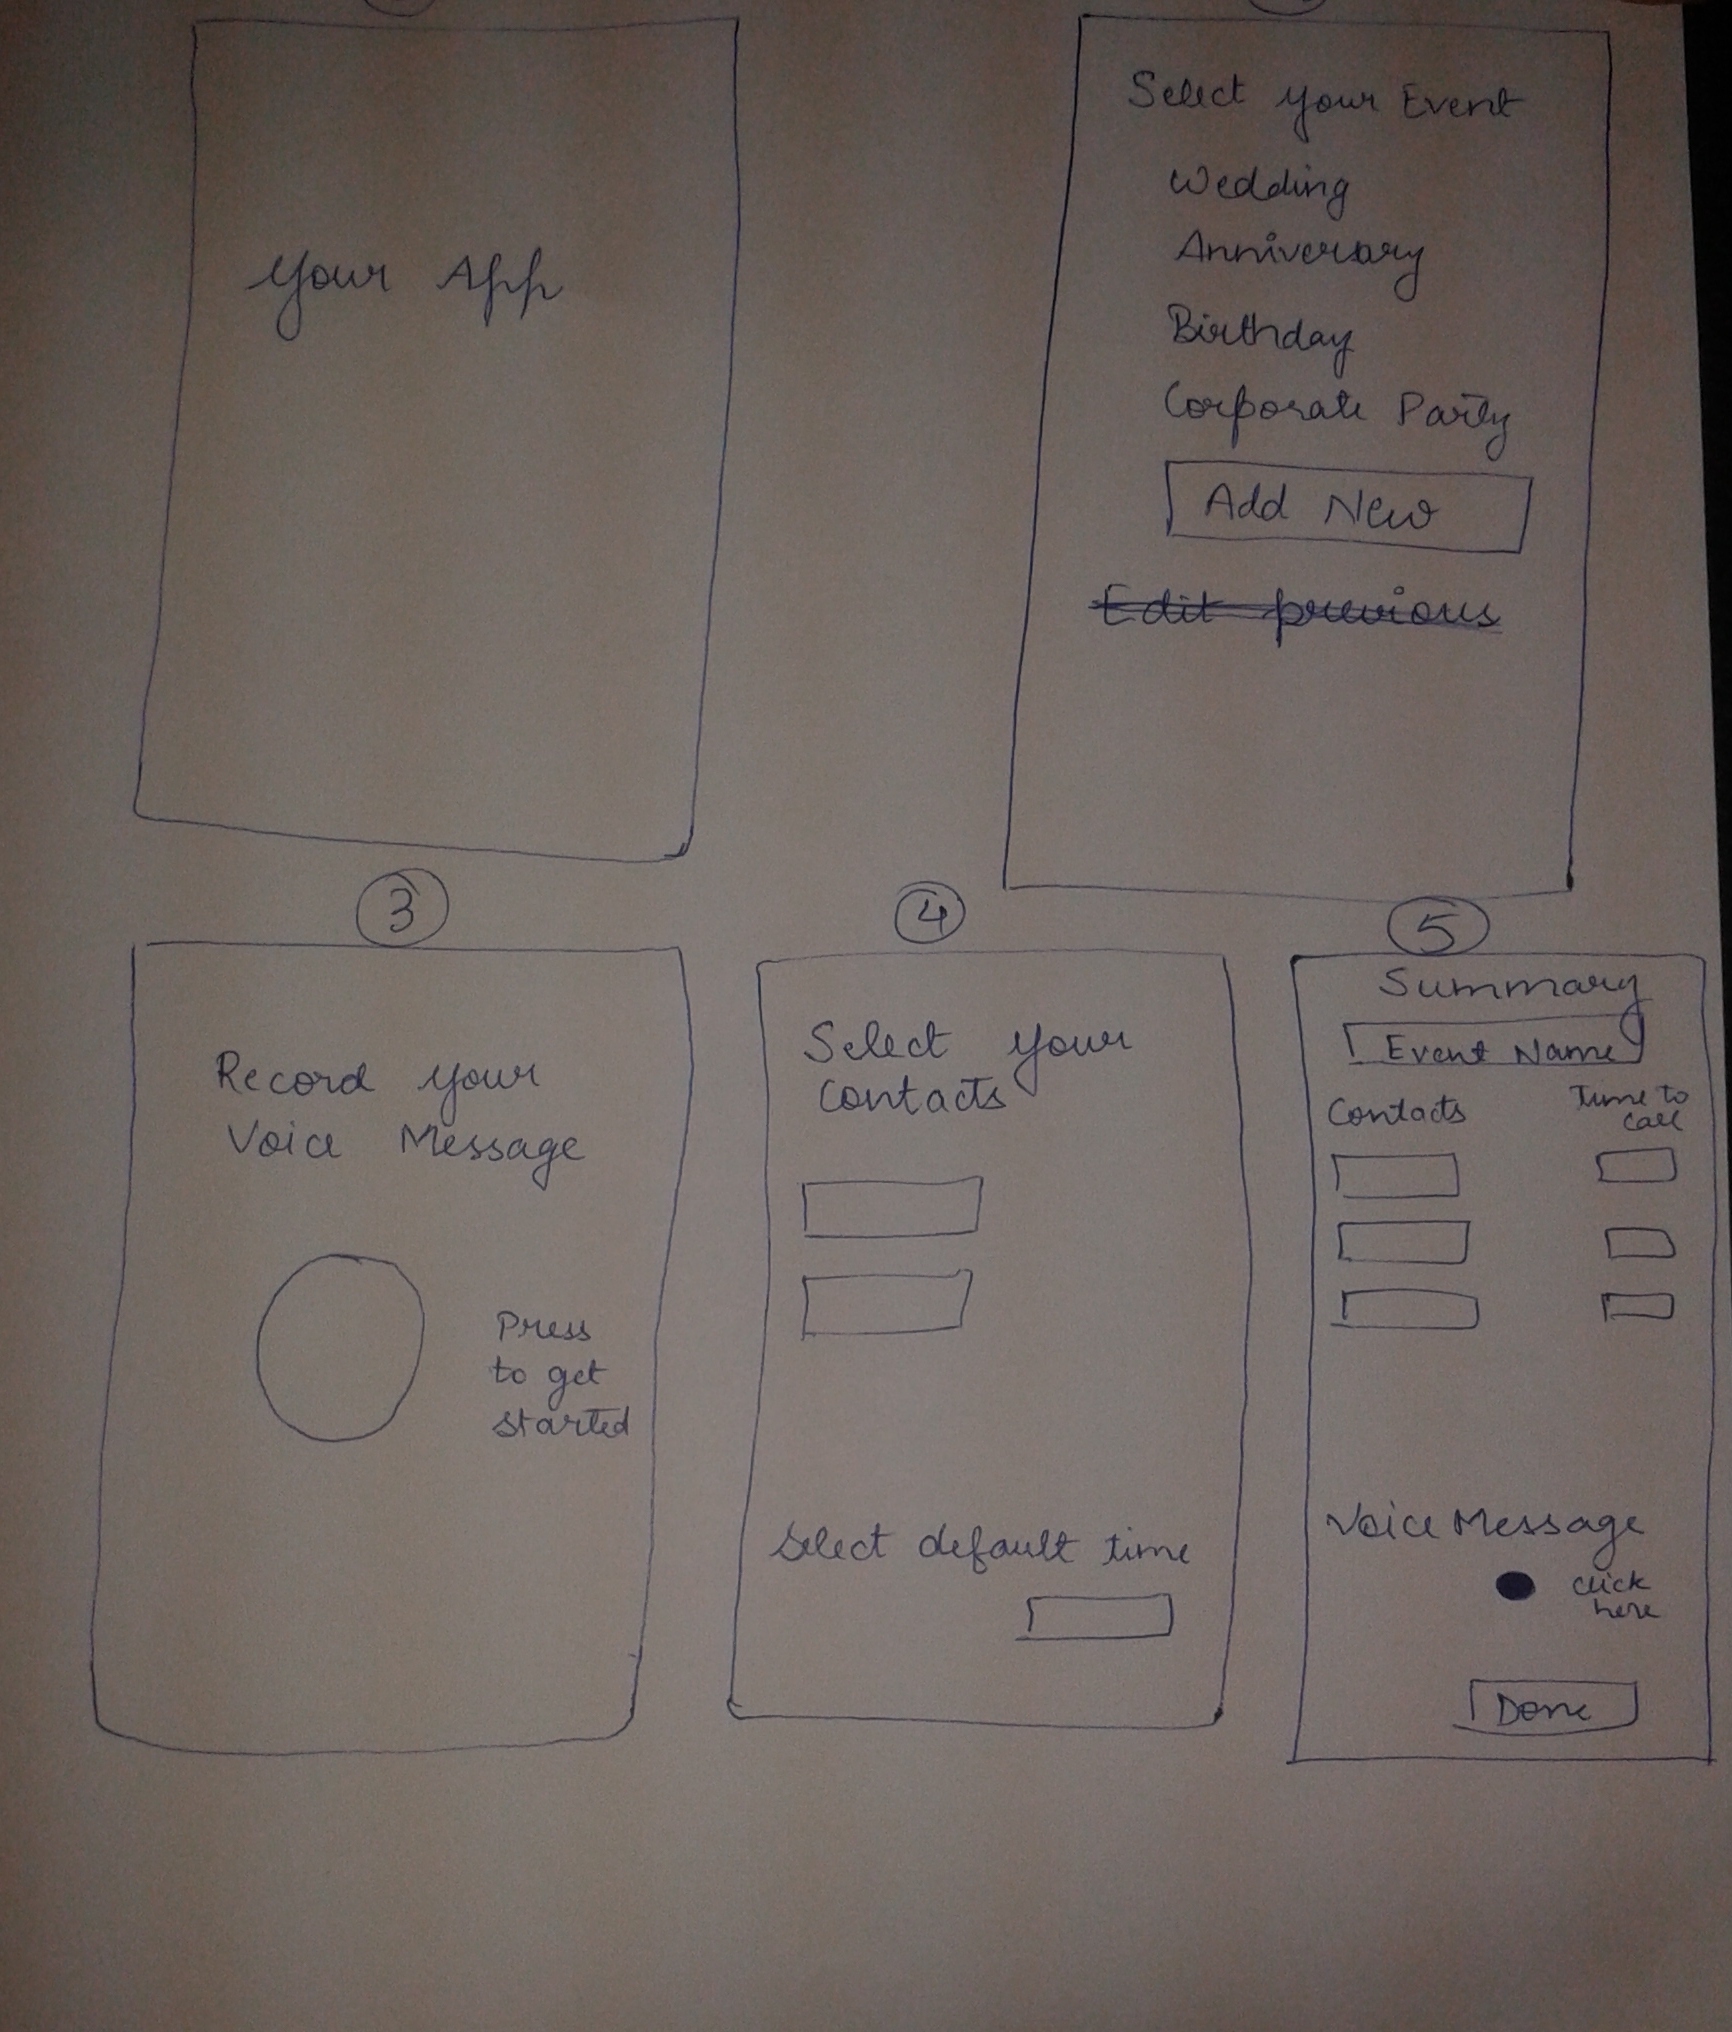 Your App
Select your Event
Wedding
Anniversary
Birthday
Corporate Party
Add New
Edit previous
3
Record your
Voice Message
Press
to get
started
4
Select your
Contacts
Select default time
5
Summary
Event Name
Contacts
Time to
call
Voice Message
click
here
Done